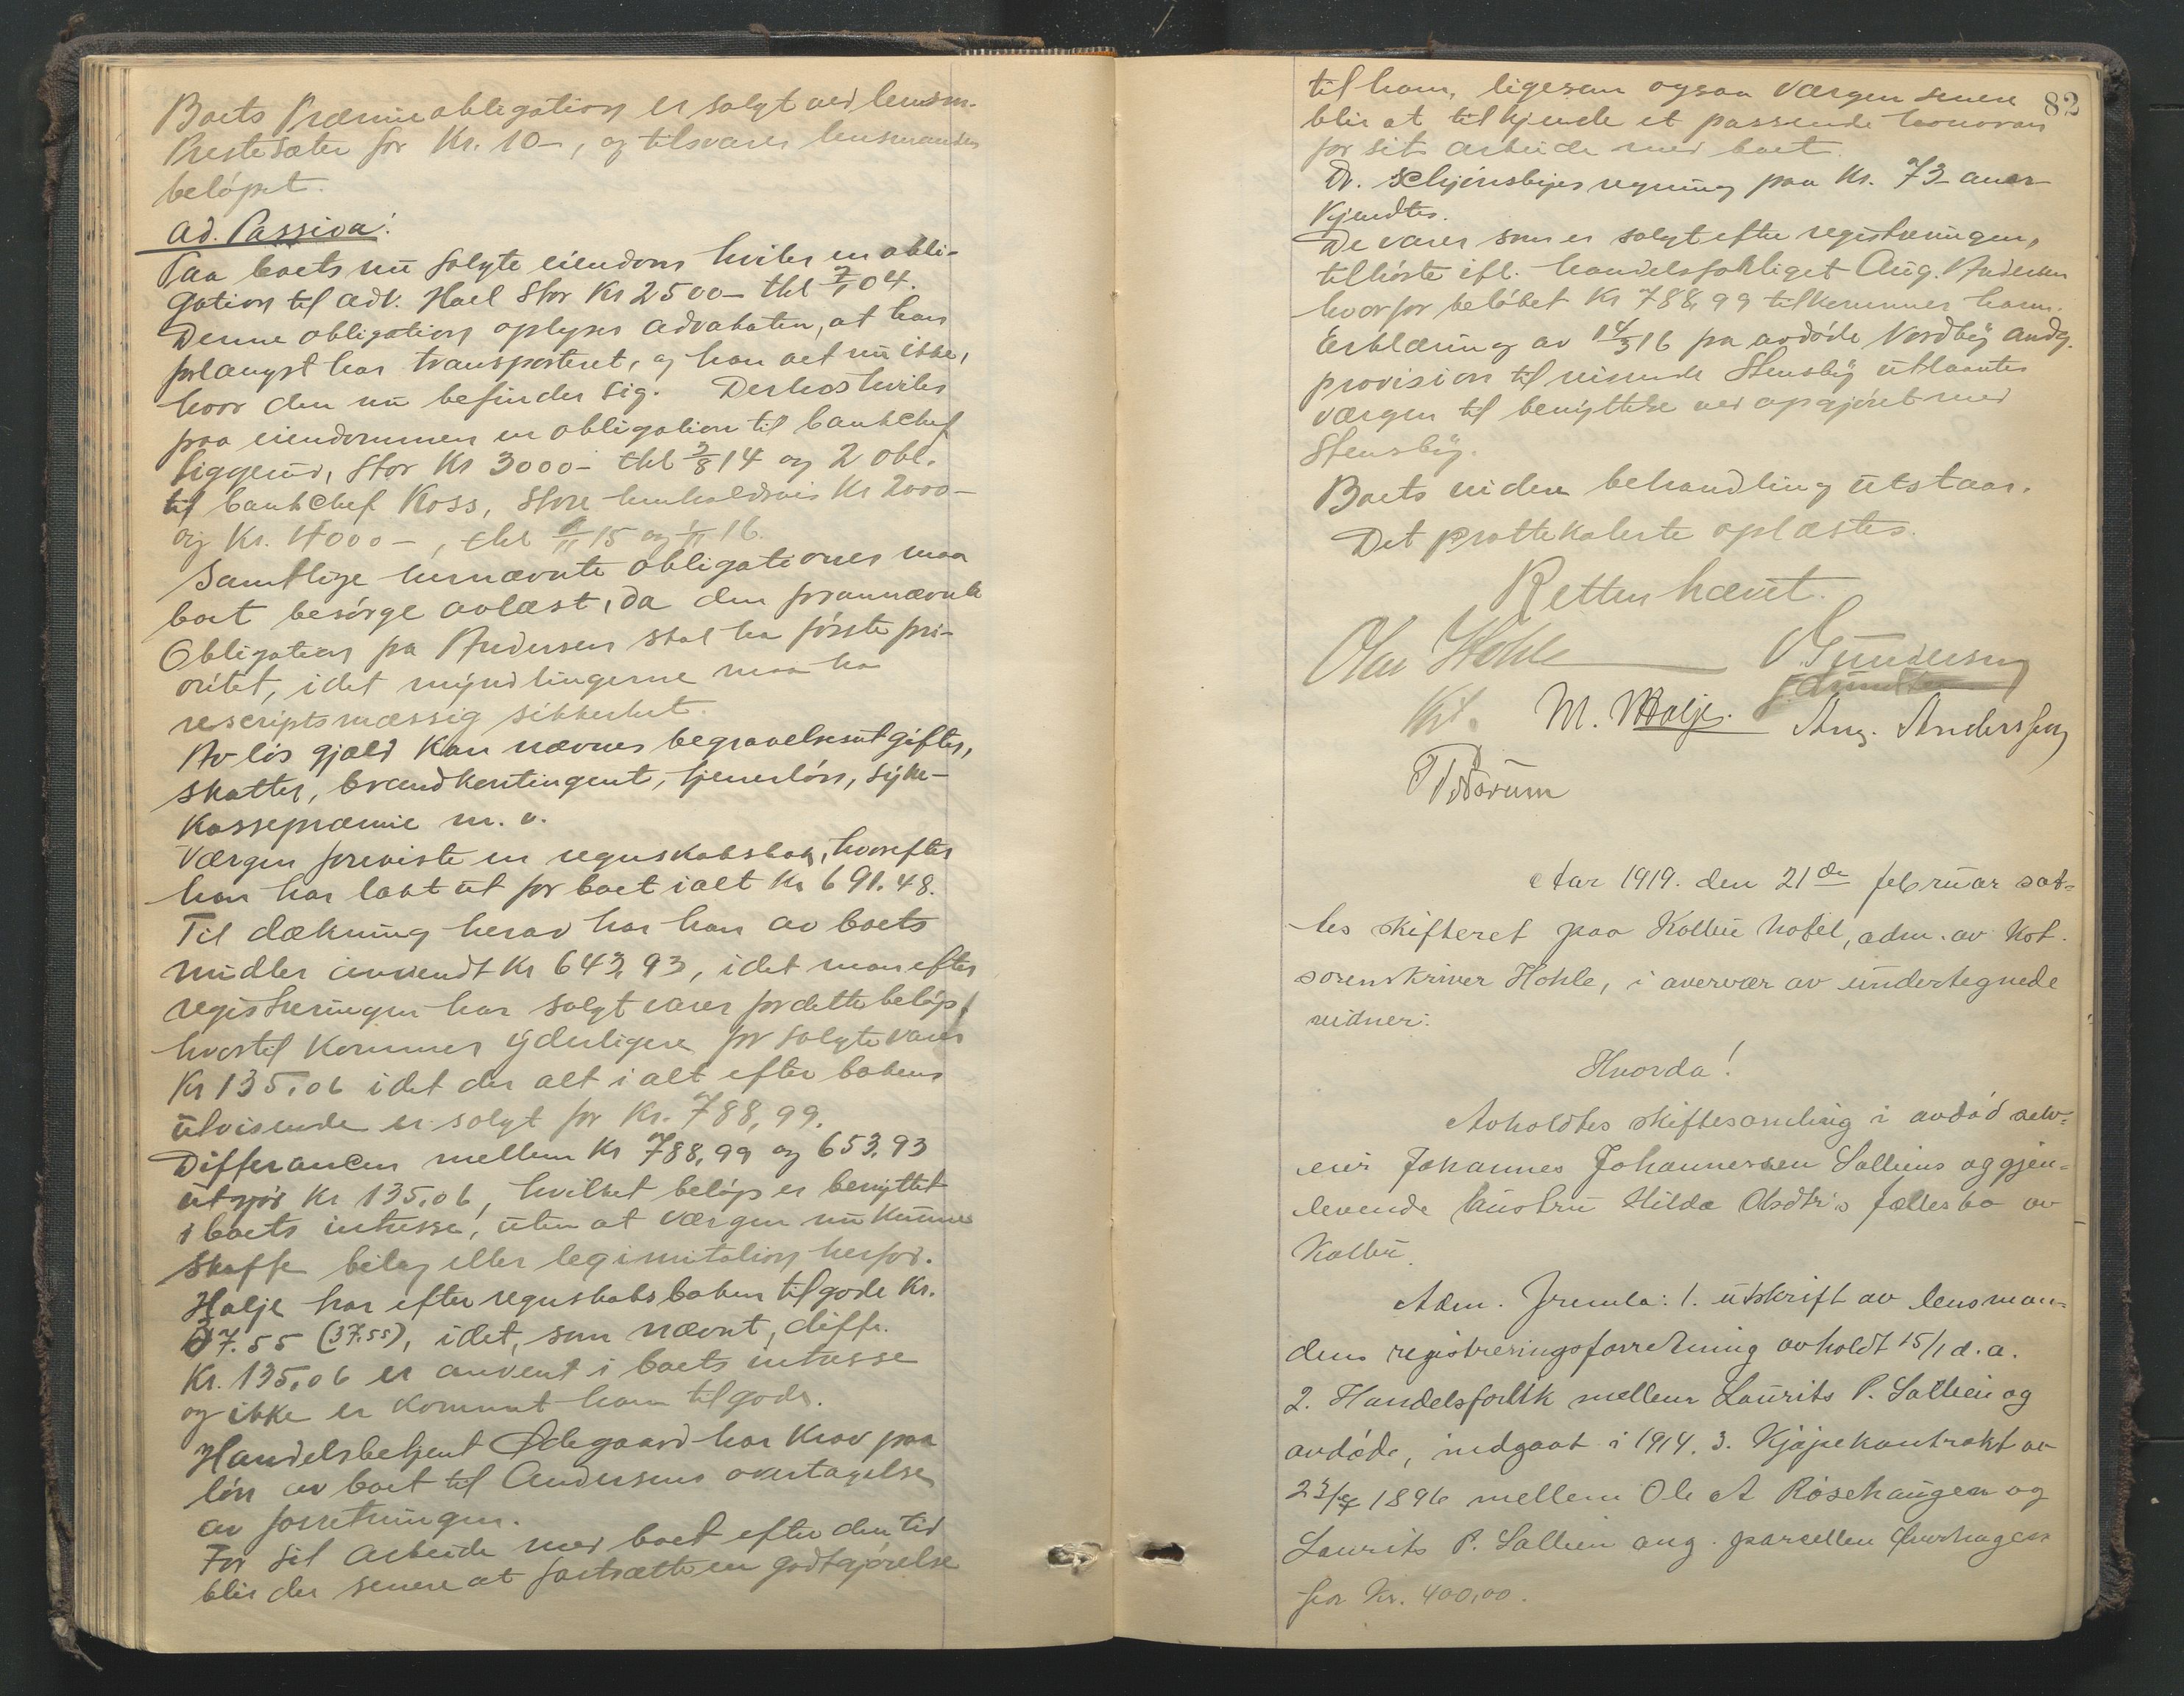 Boets Præmieobligation er solgt ved lensm.
Prestesæter for Kr. 10-, og tilsvarer lensmanden
beløpet.
ad. Passiva:
Paa boets nu solgte eiendom hviler en obli-
gation til adv. Hoel stor Kr 2500- thl 7/1 04.
Denne obligation oplyser advokaten, at han
forlængst har transporteret, og han vet nu ikke,
hvor den nu befinder sig. Derhos hviler
paa eiendommen en obligation til bankchef
Siggerud, stor Kr 3000- thl 3/8 14 og 2 obl.
til bankchef Koss, store henholdsvis Kr 2000-
og Kr. 4000-, thl 9/11 15 og 1/11 16.
Samtlige hernævnte obligationer maa
boet besørge avlæst, da den forannævnte
Obligation fra Andersen skal ha første pri-
oritet, idet myndlingerne maa ha
rescriptsmæssig sikkerhet.
Av løs gjæld kan nævnes begravelsesutgifter,
skatter, brandkontingent, tjenerløn, syke-
kassepræmie m. v.
Værgen foreviste en regnskabsbok, hvorefter
han har lakt ut for boet ialt Kr 691.48.
Til dækning herav har han av boets
midler anvendt Kr 643,93, idet man efter
registreringen har solgt varer for dette beløp,
hvortil kommer yderligere for solgte varer
Kr 135,06 idet der alt i alt efter bokens
utvisende er solgt for Kr. 788,99.
Differancen mellem Kr 788,99 og 653,93
utgjør Kr 135,06, hvilket beløp er benyttet
i boets intresse, uten at værgen nu kunne
skaffe bilag eller legimitation herfor.
Halje har efter regnskabsboken tilgode Kr.
37.55 (37.55), idet, som nævnt, diffr.
Kr. 135,06 er anvent i boets intresse
og ikke er kommet ham tilgode.
Handelsbetjent Ødegaard har krav paa
løn av boet til Andersens overtagelse
av forretningen.
For sit arbeide med boet efter den tid
blir der senere at fastsætte en godtgjørelse
82
til ham, ligesom ogsaa værgen senere
blir at tilkjende et passende honorar
for sit arbeide med boet.
Dr. Schjønsbyes regning paa Kr. 73- aner-
kjendtes.
De varer som er solgt efter registreringen,
tilhørte ifl. handelsforliget Aug. Andersen
hvorfor beløbet Kr 788,99 tilkommer ham.
Erklæring av 14/3 16 fra avdøde Nordby andg.
provision til reisende Stensby utlaantes
værgen til benyttelse ved opgjøret med
Stensby.
Boets videre behandling utstaar.
Det prottekolerte oplæstes.
Retten hævet.
Olav Hohle V. Gundersen
M. Halje. Aug. Anderssen
Aar 1919. den 21de februar sat-
tes skifteret paa Kolbu hotel, adm. av kst.
sorenskriver Hohle, i overvær av undertegnede
vidner:
Hvorda!
Avholdtes skiftesamling i avdød selv-
eier Johannes Johannessen Salliens og gjen-
levende hustru Hilda Olsdtr's fællesbo av
Kolbu.
Adm. fremla: 1. utskrift av lensman-
dens registreringsforretning avholdt 15/1 d. a.
2. Handelsforlik mellem Laurits P. Sallien og
avdøde, indgaat i 1914. 3. Kjøpekontrakt av
23/4 1896 mellem Ole A Rosehaugen og
Laurits P. Sallien ang. parcellen
for Kr. 400,00.